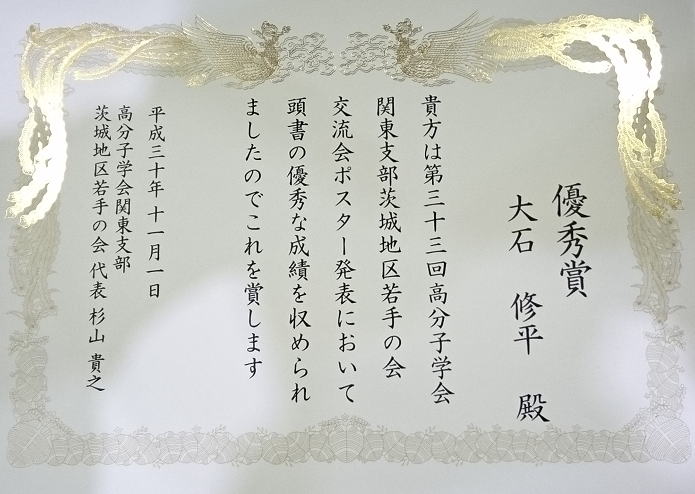 優秀賞
大石 修平 殿
貴方は第三十三回高分子学会
関東支部茨城地区若手の会
交流会ポスター発表において
頭書の優秀な成績を収められ
ましたのでこれを賞します
平成三十年 十一月一日
高分子学会関東支部
茨城地区若手の会 代表 杉山 貴之